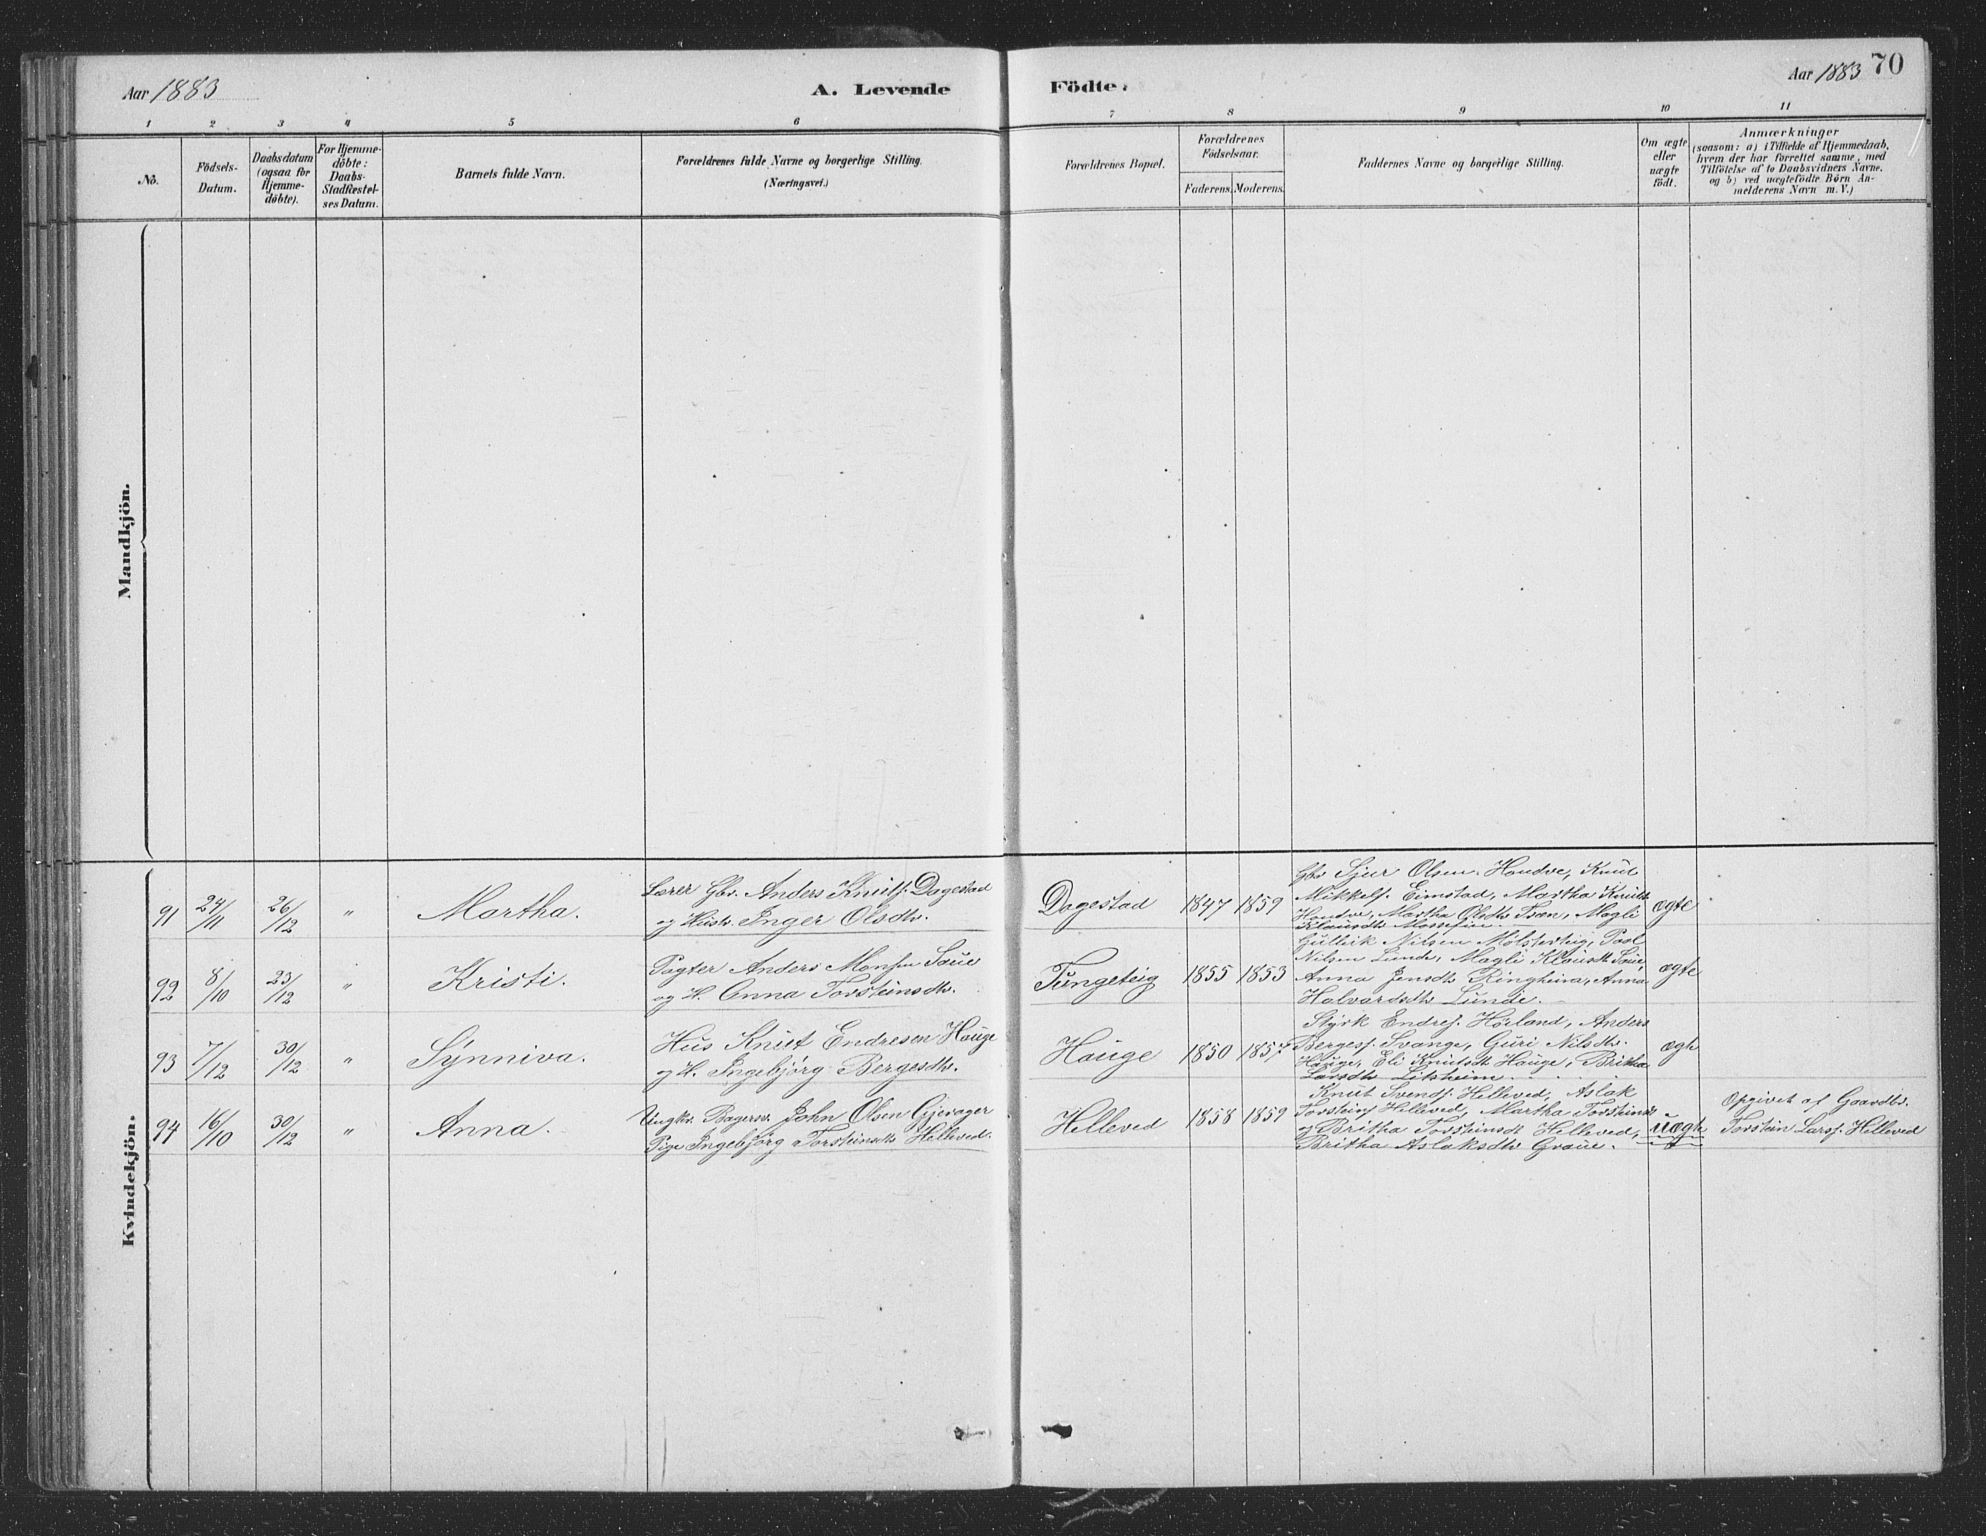 Aar 1883
A. Levende Födte.
Aar 1883 70
1 2 3 4 5 6 7 8 9 10 11
No.
Födsels-
Datum.
Daabsdatum
(ogsaa for
Hjemme-
döbte).
For Hjemme-
döbte:
Daabs-
Stadfæstel-
ses Datum.
Barnets fulde Navn.
Forældrenes fulde Navne og borgerlige Stilling.
(Næringsvei.)
Forældrenes Bopæl.
Forældrenes
Födselsaar.
Faderens. Moderens.
Faddernes Navne og borgerlige Stilling.
Om ægte
eller
uægte
födt.
Anmærkninger
(saasom: a) i Tilfælde af Hjemmedaab,
hvem der har forrettet samme, med
Tilföielse af to Daabsvidners Navne,
og b) ved uægtefödte Börn An-
melderens Navn m. V.)
Mandkjön.
Kvindekjön.
91 24/11 26/12 " Martha.
Lærer Gbr. Anders Knuts. Dagestad
og Hustr. Inger Olsdtr.
Dagestad 1847 1859
Gbr Sjur Olsen Hondve, Knut
Mikkels. Eimstad, Martha Knutsdt
Hondve, Martha Olsdtr Træn, Magli
Klausdtr
ægte
92 8/10 23/12 " Kristi.
Pagter Anders Monsen Saue
og H. Anna Torsteinsdtr.
Tungeteig 1855 1853
Gulleik Nilsen Mölsterteig, Poal
Nilsen Lunde, Magli Klausdt Saue
Anna Jensdtr Ringheim, Anna
Halvardsdtr Lunde.
ægte
93 7/12 30/12 " Synniva.
Hus Knut Endresen Hauge
og H. Ingebjörg Bergesdtr.
Hauge 1850 1857
Styrk Endres. Hörland, Anders
Berges. Svange, Guri Nilsdtr.
Hauge, Eli Knutsdt Hauge, Britha
Larsdtr Litsheim
ægte
94 16/10 30/12 " Anna.
Ungkr. Bagersv. John Olsen Gjerager
Pige Ingebjörg Torsteinsdt Helleved.
Helleved 1858 1859
Knut Svends. Helleved, Aslak
Torsteins Helleved, Martha Torsteinsdt
og Britha Torsteinsdt Helleved,
Britha Aslaksdtr Graue.
uægte
Opgivet af Gaardbr.
Torstein Larss. Helleved